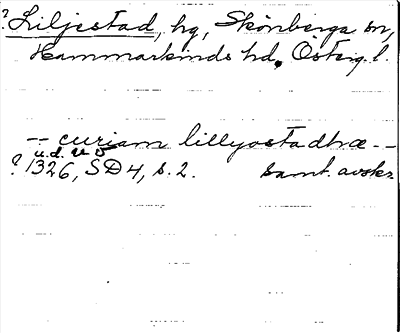 ? Liljestad, hg, Skönberga sn,
Hammarkinds hd, Östergl.
-- curiam lillyostadhæ --
u.d.
? 1326, SD4, s. 2. samt. avskr.